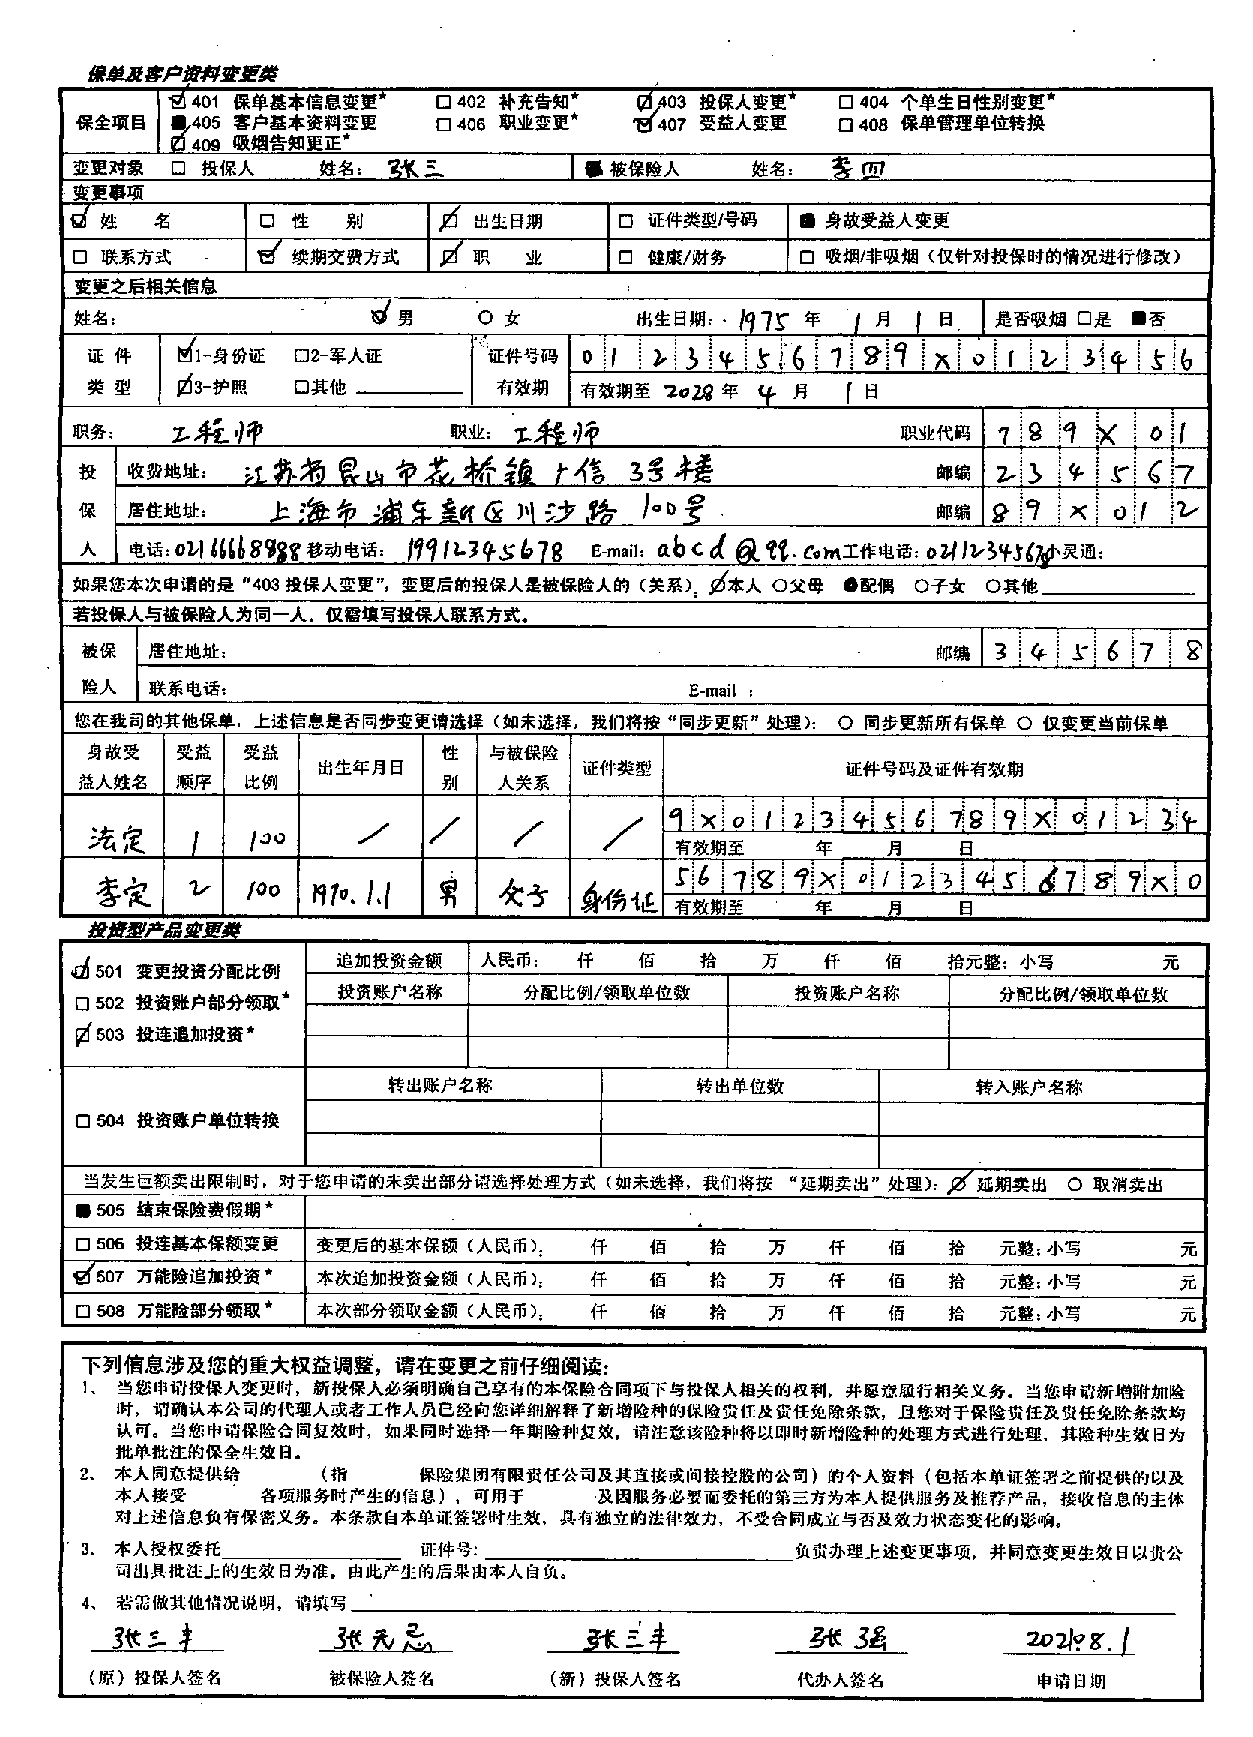 保单及客户资料变更类
保全项目
☑401 保单基本信息变更* □402 补充告知* ☑403 投保人变更* □404 个单生日性别变更*
■405 客户基本资料变更 □406 职业变更* ☑407 受益人变更 □408 保单管理单位转换
☑409 吸烟告知更正*
变更对象 □ 投保人 姓名: 张三 ■ 被保险人 姓名: 李四
变更事项
☑ 姓 名 □ 性 别 ☑ 出生日期 □ 证件类型/号码 ■ 身故受益人变更
□ 联系方式 ☑ 续期交费方式 ☑ 职 业 □ 健康/财务 □ 吸烟/非吸烟（仅针对投保时的情况进行修改）
变更之后相关信息
姓名: ☑男 ○女 出生日期: 1975 年 1 月 1 日 是否吸烟 □是 ■否
证 件 ☑1-身份证 □2-军人证 证件号码 0123456789X0123456
类 型 ☑3-护照 □其他 有效期 有效期至 2028 年 4 月 1 日
职务: 工程师 职业: 工程师 职业代码 789X01
投 收费地址: 江苏省昆山市花桥镇广信3号楼 邮编 234567
保 居住地址: 上海市浦东新区川沙路100号 邮编 89X012
人 电话:02166668988 移动电话: 19912345678 E-mail: abcd@qq.com 工作电话: 02112345678 小灵通:
如果您本次申请的是“403 投保人变更”，变更后的投保人是被保险人的（关系）: ☑本人 ○父母 ●配偶 ○子女 ○其他
若投保人与被保险人为同一人，仅需填写投保人联系方式。
被保 居住地址: 邮编 345678
险人 联系电话: E-mail :
您在我司的其他保单，上述信息是否同步变更请选择（如未选择，我们将按“同步更新”处理）: ○ 同步更新所有保单 ○ 仅变更当前保单
身故受益人姓名 受益顺序 受益比例 出生年月日 性别 与被保险人关系 证件类型 证件号码及证件有效期
法定 1 100 / / / / 9X0123456789X01234
有效期至 年 月 日
李定 2 100 1970.1.1 男 父子 身份证 56789X0123456789X0
有效期至 年 月 日
投资型产品变更类
☑501 变更投资分配比例 追加投资金额 人民币: 仟 佰 拾 万 仟 佰 拾元整: 小写 元
□502 投资账户部分领取* 投资账户名称 分配比例/领取单位数 投资账户名称 分配比例/领取单位数
☑503 投连追加投资*
转出账户名称 转出单位数 转入账户名称
□504 投资账户单位转换
当发生巨额卖出限制时，对于您申请的未卖出部分请选择处理方式（如未选择，我们将按 “延期卖出”处理）: ☑ 延期卖出 ○ 取消卖出
■505 结束保险费假期*
□506 投连基本保额变更 变更后的基本保额（人民币）: 仟 佰 拾 万 仟 佰 拾 元整: 小写 元
☑507 万能险追加投资* 本次追加投资金额（人民币）: 仟 佰 拾 万 仟 佰 拾 元整: 小写 元
□508 万能险部分领取* 本次部分领取金额（人民币）: 仟 佰 拾 万 仟 佰 拾 元整: 小写 元
下列信息涉及您的重大权益调整，请在变更之前仔细阅读:
1、 当您申请投保人变更时，新投保人必须明确自己享有的本保险合同项下与投保人相关的权利，并愿意履行相关义务。当您申请新增附加险
时，请确认本公司的代理人或者工作人员已经向您详细解释了新增险种的保险责任及责任免除条款，且您对于保险责任及责任免除条款均
认可。当您申请保险合同复效时，如果同时选择一年期险种复效，请注意该险种将以即时新增险种的处理方式进行处理，其险种生效日为
批单批注的保全生效日。
2、 本人同意提供给 （指 保险集团有限责任公司及其直接或间接控股的公司）的个人资料（包括本单证签署之前提供的以及
本人接受 各项服务时产生的信息），可用于 及因服务必要而委托的第三方为本人提供服务及推荐产品，接收信息的主体
对上述信息负有保密义务。本条款自本单证签署时生效，具有独立的法律效力，不受合同成立与否及效力状态变化的影响。
3、 本人授权委托 证件号: 负责办理上述变更事项，并同意变更生效日以贵公
司出具批注上的生效日为准，由此产生的后果由本人自负。
4、 若需做其他情况说明，请填写
张三丰 张无忌 张三丰 张强 2021.8.1
（原）投保人签名 被保险人签名 （新）投保人签名 代办人签名 申请日期